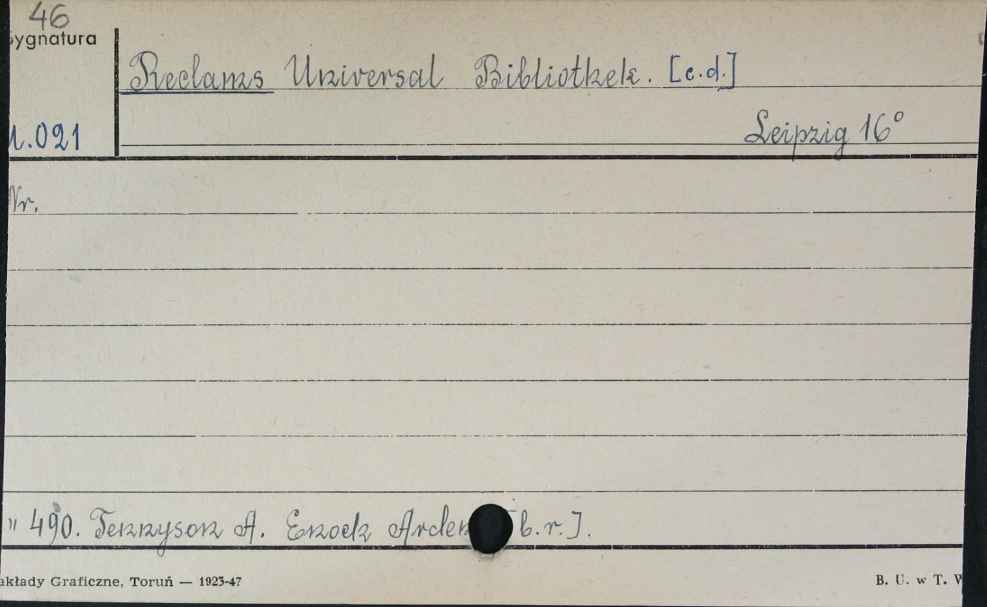 46
ygnatura
Reclams Universal Bibliothek. [c.d.]
.021
Leipzig 16°
Nr.
" 490. Tennyson A. Enoch Arden [b.r.].
akłady Graficzne, Toruń — 1923-47
B. U. w T. W